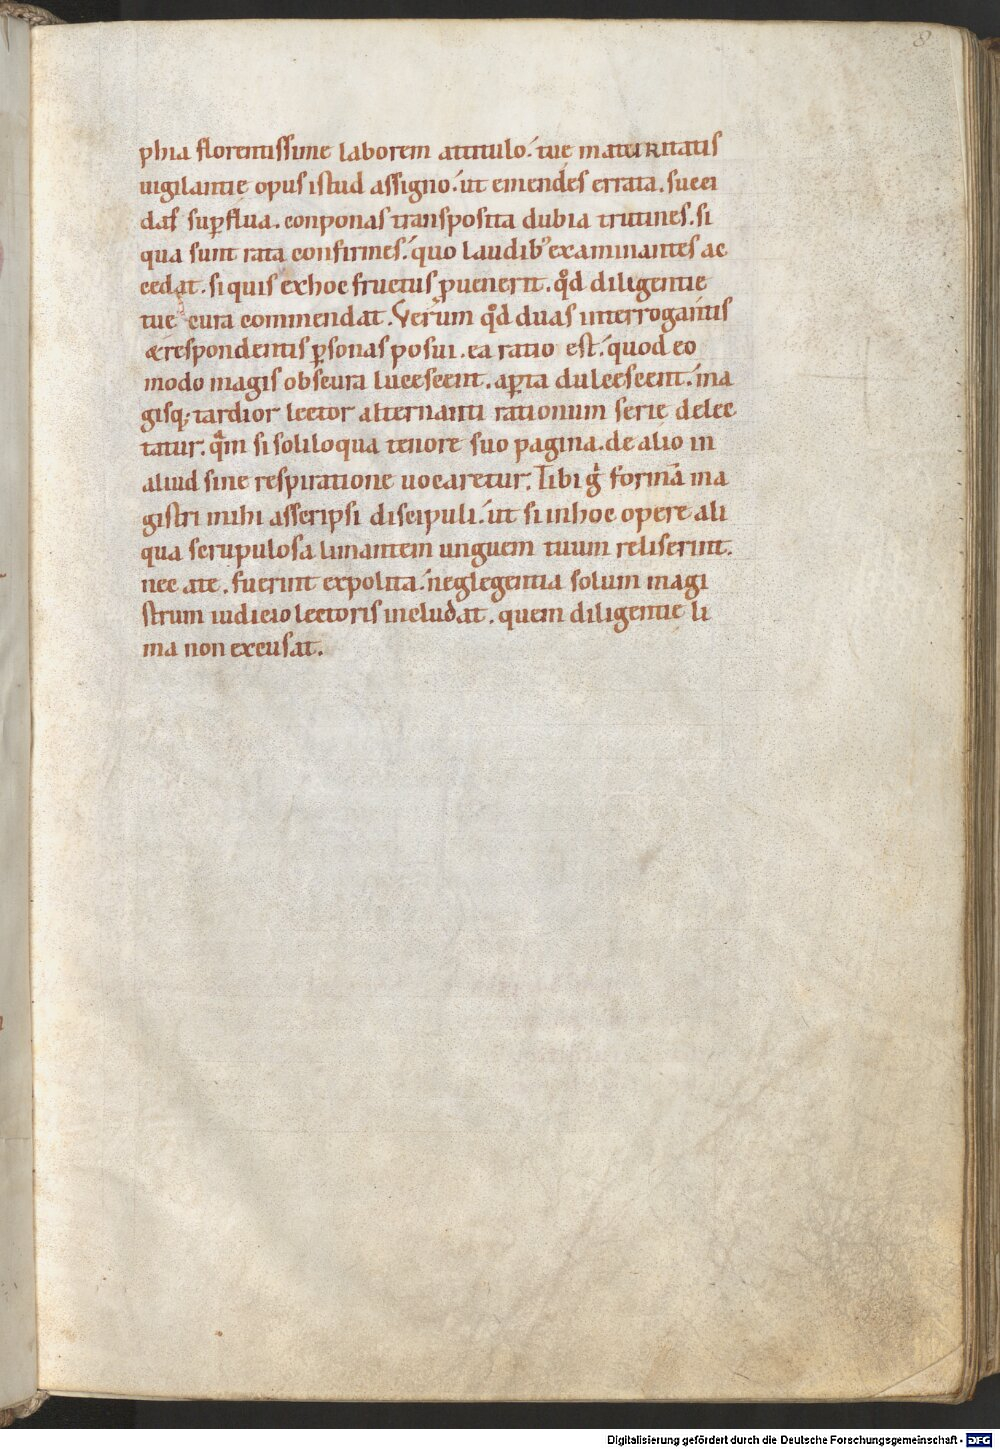 8
phia florentissime laborem attitulo. tue maturitatis
uigilantie opus istud assigno. ut emendes errata. succi
das sup̱flua. conponas transposita dubia trutines. si
qua sunt rata confirmes. quo laudibꝰ examinantes ac
cedat. si quis ex hoc fructus ꝓuenerit. qd̓ diligentie
tue cura commendat. Verum qd̓ duas interrogantis
& respondentis ꝑsonas posui. ea ratio est. quod eo
modo magis obscura lucescent. aꝑta dulcescent. ma
gisq; tardior lector alternanti rationum serie delec
tatur. qͣm si soliloqua tenore suo pagina. de alio in
aliud sine respiratione uocaretur. Tibi gͥ formā ma
gistri mihi asscripsi discipuli. ut si in hoc opere ali
qua scrupulosa limantem unguem tuum reliserint.
nec a te. fuerint expolita. neglegentia solum magi
strum iudicio lectoris includat. quem diligentie li
ma non excusat.
Digitalisierung gefördert durch die Deutsche Forschungsgemeinschaft - DFG